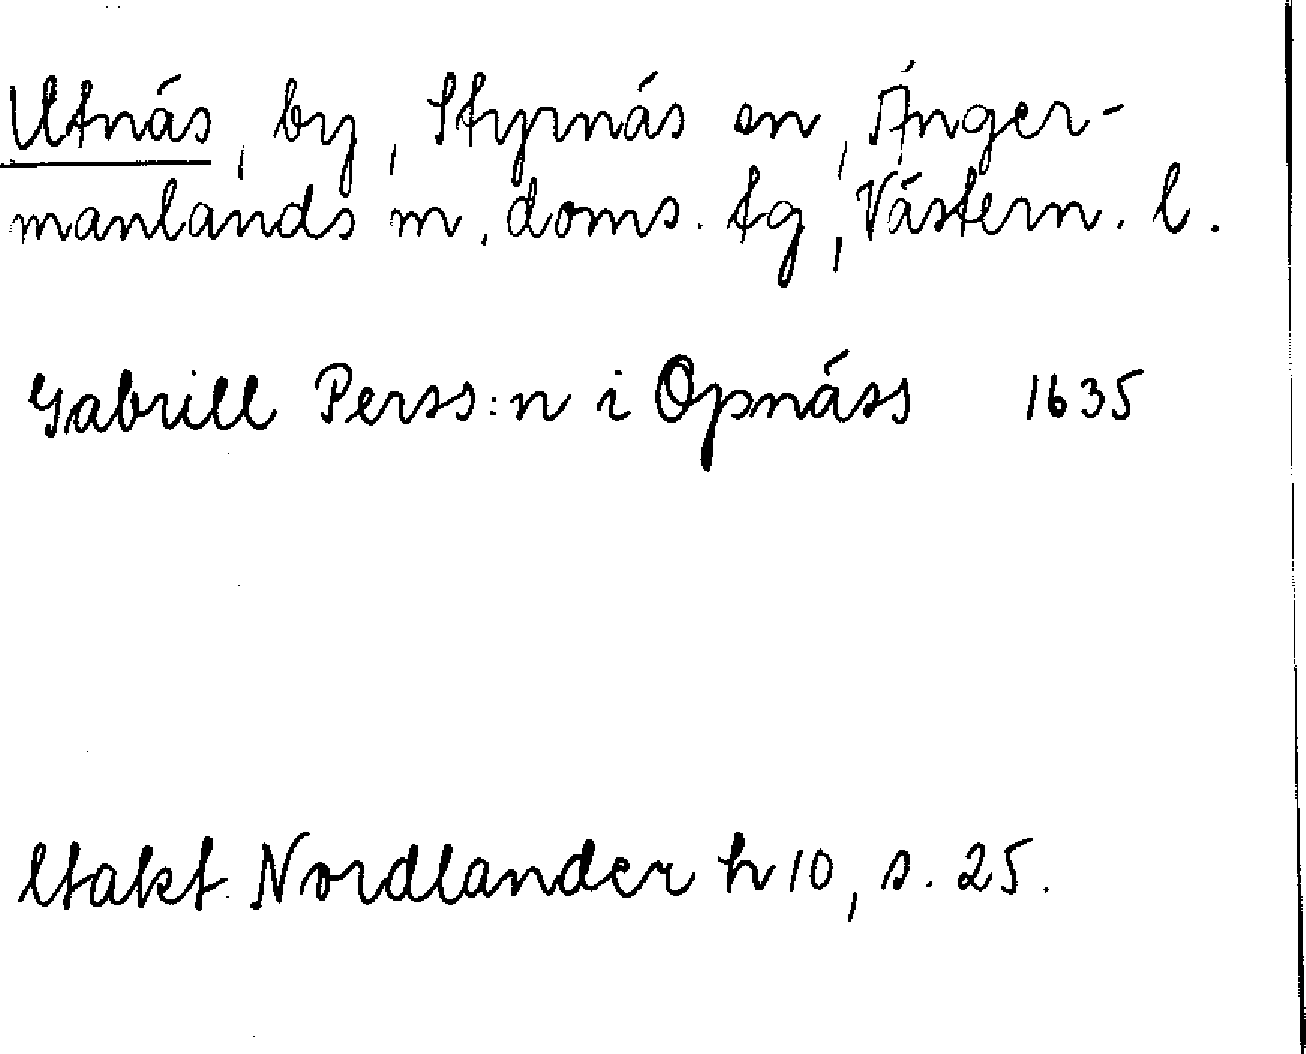 Utnäs, by, Styrnäs sn, Ånger-
manlands m. doms. tg, Västern. l.
Gabrill Perss:n i Opnäss 1635
Utakt. Nordlander h 10, s. 25.